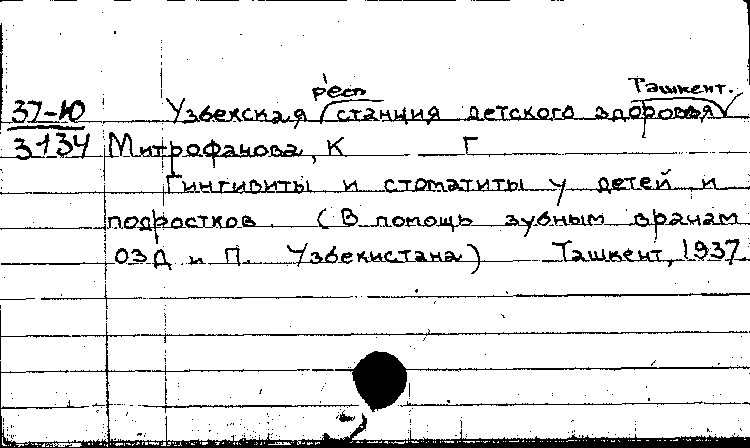 респ Ташкент.
37-Ю Узбекская станция детского здоровья
3134 Митрофанова, К Г
Гингивиты и стоматиты у детей и
подростков. (В помощь зубным врачам
ОЗД и П. Узбекистана) Ташкент, 1937